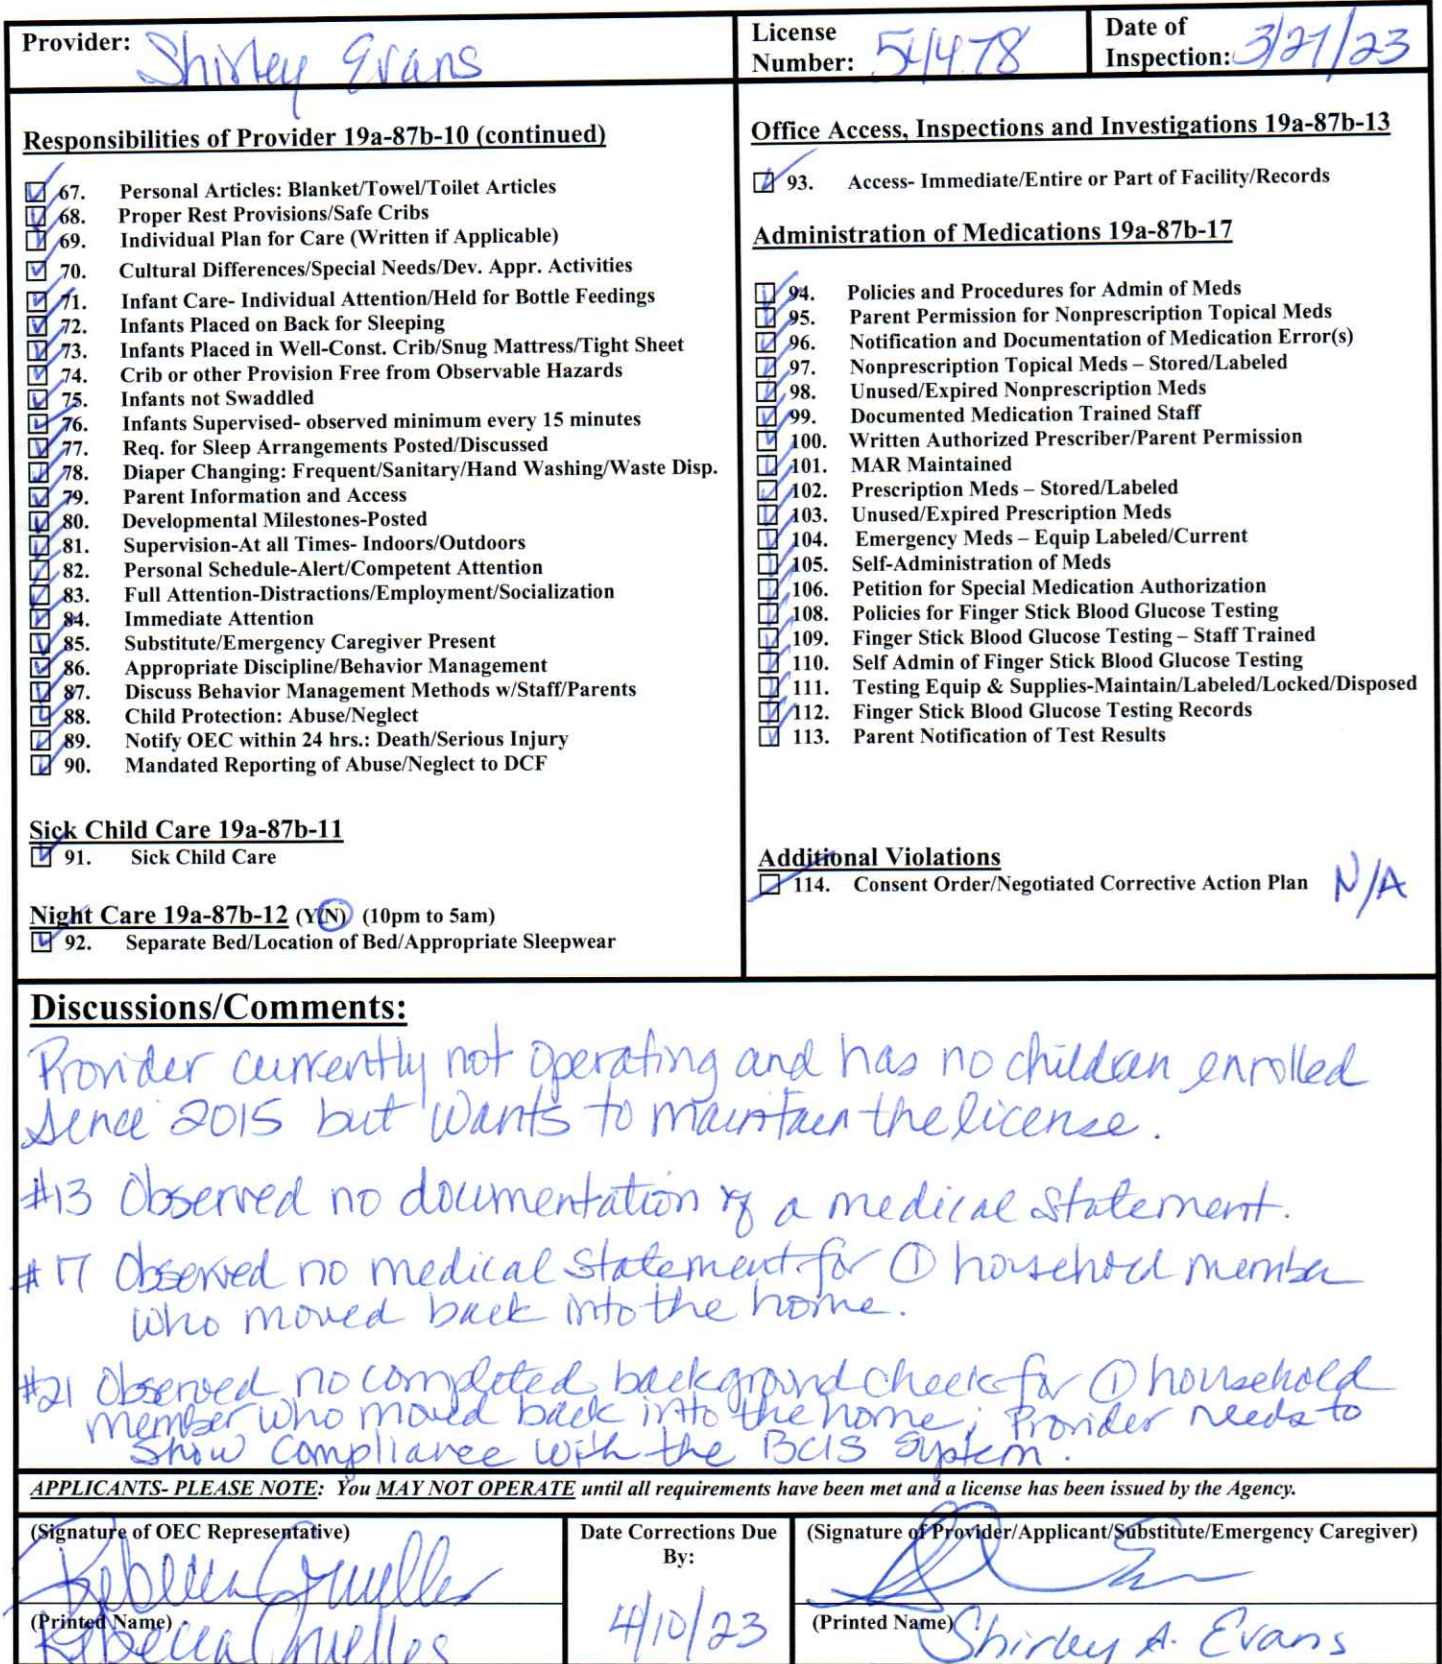 Provider: Shirley Evans
License Number: 54478
Date of Inspection: 3/21/23
Responsibilities of Provider 19a-87b-10 (continued)
67. Personal Articles: Blanket/Towel/Toilet Articles
68. Proper Rest Provisions/Safe Cribs
69. Individual Plan for Care (Written if Applicable)
70. Cultural Differences/Special Needs/Dev. Appr. Activities
71. Infant Care- Individual Attention/Held for Bottle Feedings
72. Infants Placed on Back for Sleeping
73. Infants Placed in Well-Const. Crib/Snug Mattress/Tight Sheet
74. Crib or other Provision Free from Observable Hazards
75. Infants not Swaddled
76. Infants Supervised- observed minimum every 15 minutes
77. Req. for Sleep Arrangements Posted/Discussed
78. Diaper Changing: Frequent/Sanitary/Hand Washing/Waste Disp.
79. Parent Information and Access
80. Developmental Milestones-Posted
81. Supervision-At all Times- Indoors/Outdoors
82. Personal Schedule-Alert/Competent Attention
83. Full Attention-Distractions/Employment/Socialization
84. Immediate Attention
85. Substitute/Emergency Caregiver Present
86. Appropriate Discipline/Behavior Management
87. Discuss Behavior Management Methods w/Staff/Parents
88. Child Protection: Abuse/Neglect
89. Notify OEC within 24 hrs.: Death/Serious Injury
90. Mandated Reporting of Abuse/Neglect to DCF
Sick Child Care 19a-87b-11
91. Sick Child Care
Night Care 19a-87b-12 (Y/N) (10pm to 5am)
92. Separate Bed/Location of Bed/Appropriate Sleepwear
Office Access, Inspections and Investigations 19a-87b-13
93. Access- Immediate/Entire or Part of Facility/Records
Administration of Medications 19a-87b-17
94. Policies and Procedures for Admin of Meds
95. Parent Permission for Nonprescription Topical Meds
96. Notification and Documentation of Medication Error(s)
97. Nonprescription Topical Meds – Stored/Labeled
98. Unused/Expired Nonprescription Meds
99. Documented Medication Trained Staff
100. Written Authorized Prescriber/Parent Permission
101. MAR Maintained
102. Prescription Meds – Stored/Labeled
103. Unused/Expired Prescription Meds
104. Emergency Meds – Equip Labeled/Current
105. Self-Administration of Meds
106. Petition for Special Medication Authorization
108. Policies for Finger Stick Blood Glucose Testing
109. Finger Stick Blood Glucose Testing – Staff Trained
110. Self Admin of Finger Stick Blood Glucose Testing
111. Testing Equip & Supplies-Maintain/Labeled/Locked/Disposed
112. Finger Stick Blood Glucose Testing Records
113. Parent Notification of Test Results
Additional Violations
114. Consent Order/Negotiated Corrective Action Plan N/A
Discussions/Comments:
Provider currently not operating and has no children enrolled
since 2015 but wants to maintain the license.
#13 Observed no documentation of a medical statement.
#17 Observed no medical statement for ① household member
who moved back into the home.
#21 Observed no completed background check for ① household
member who moved back into the home; Provider needs to
show compliance with the BCIS system.
APPLICANTS- PLEASE NOTE: You MAY NOT OPERATE until all requirements have been met and a license has been issued by the Agency.
(Signature of OEC Representative)
Rebecca
(Printed Name)
Rebecca
Date Corrections Due
By:
4/10/23
(Signature of Provider/Applicant/Substitute/Emergency Caregiver)
(Printed Name) Shirley A. Evans